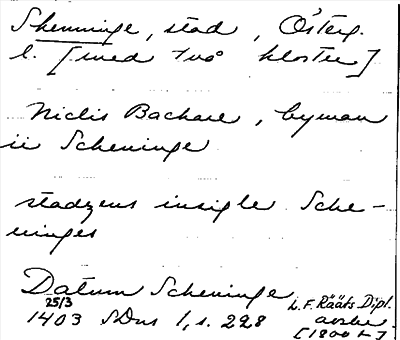 Skenninge, stad, Österg.
l. [med två kloster]
Niclis Bachare, byman
ii Scheninge
stadzens insigle Sche-
ninges
Datum Scheninge
25/3
1403 SDns 1, s. 228
L.F. Rääfs Dipl.
avskr.
[1800 t.]